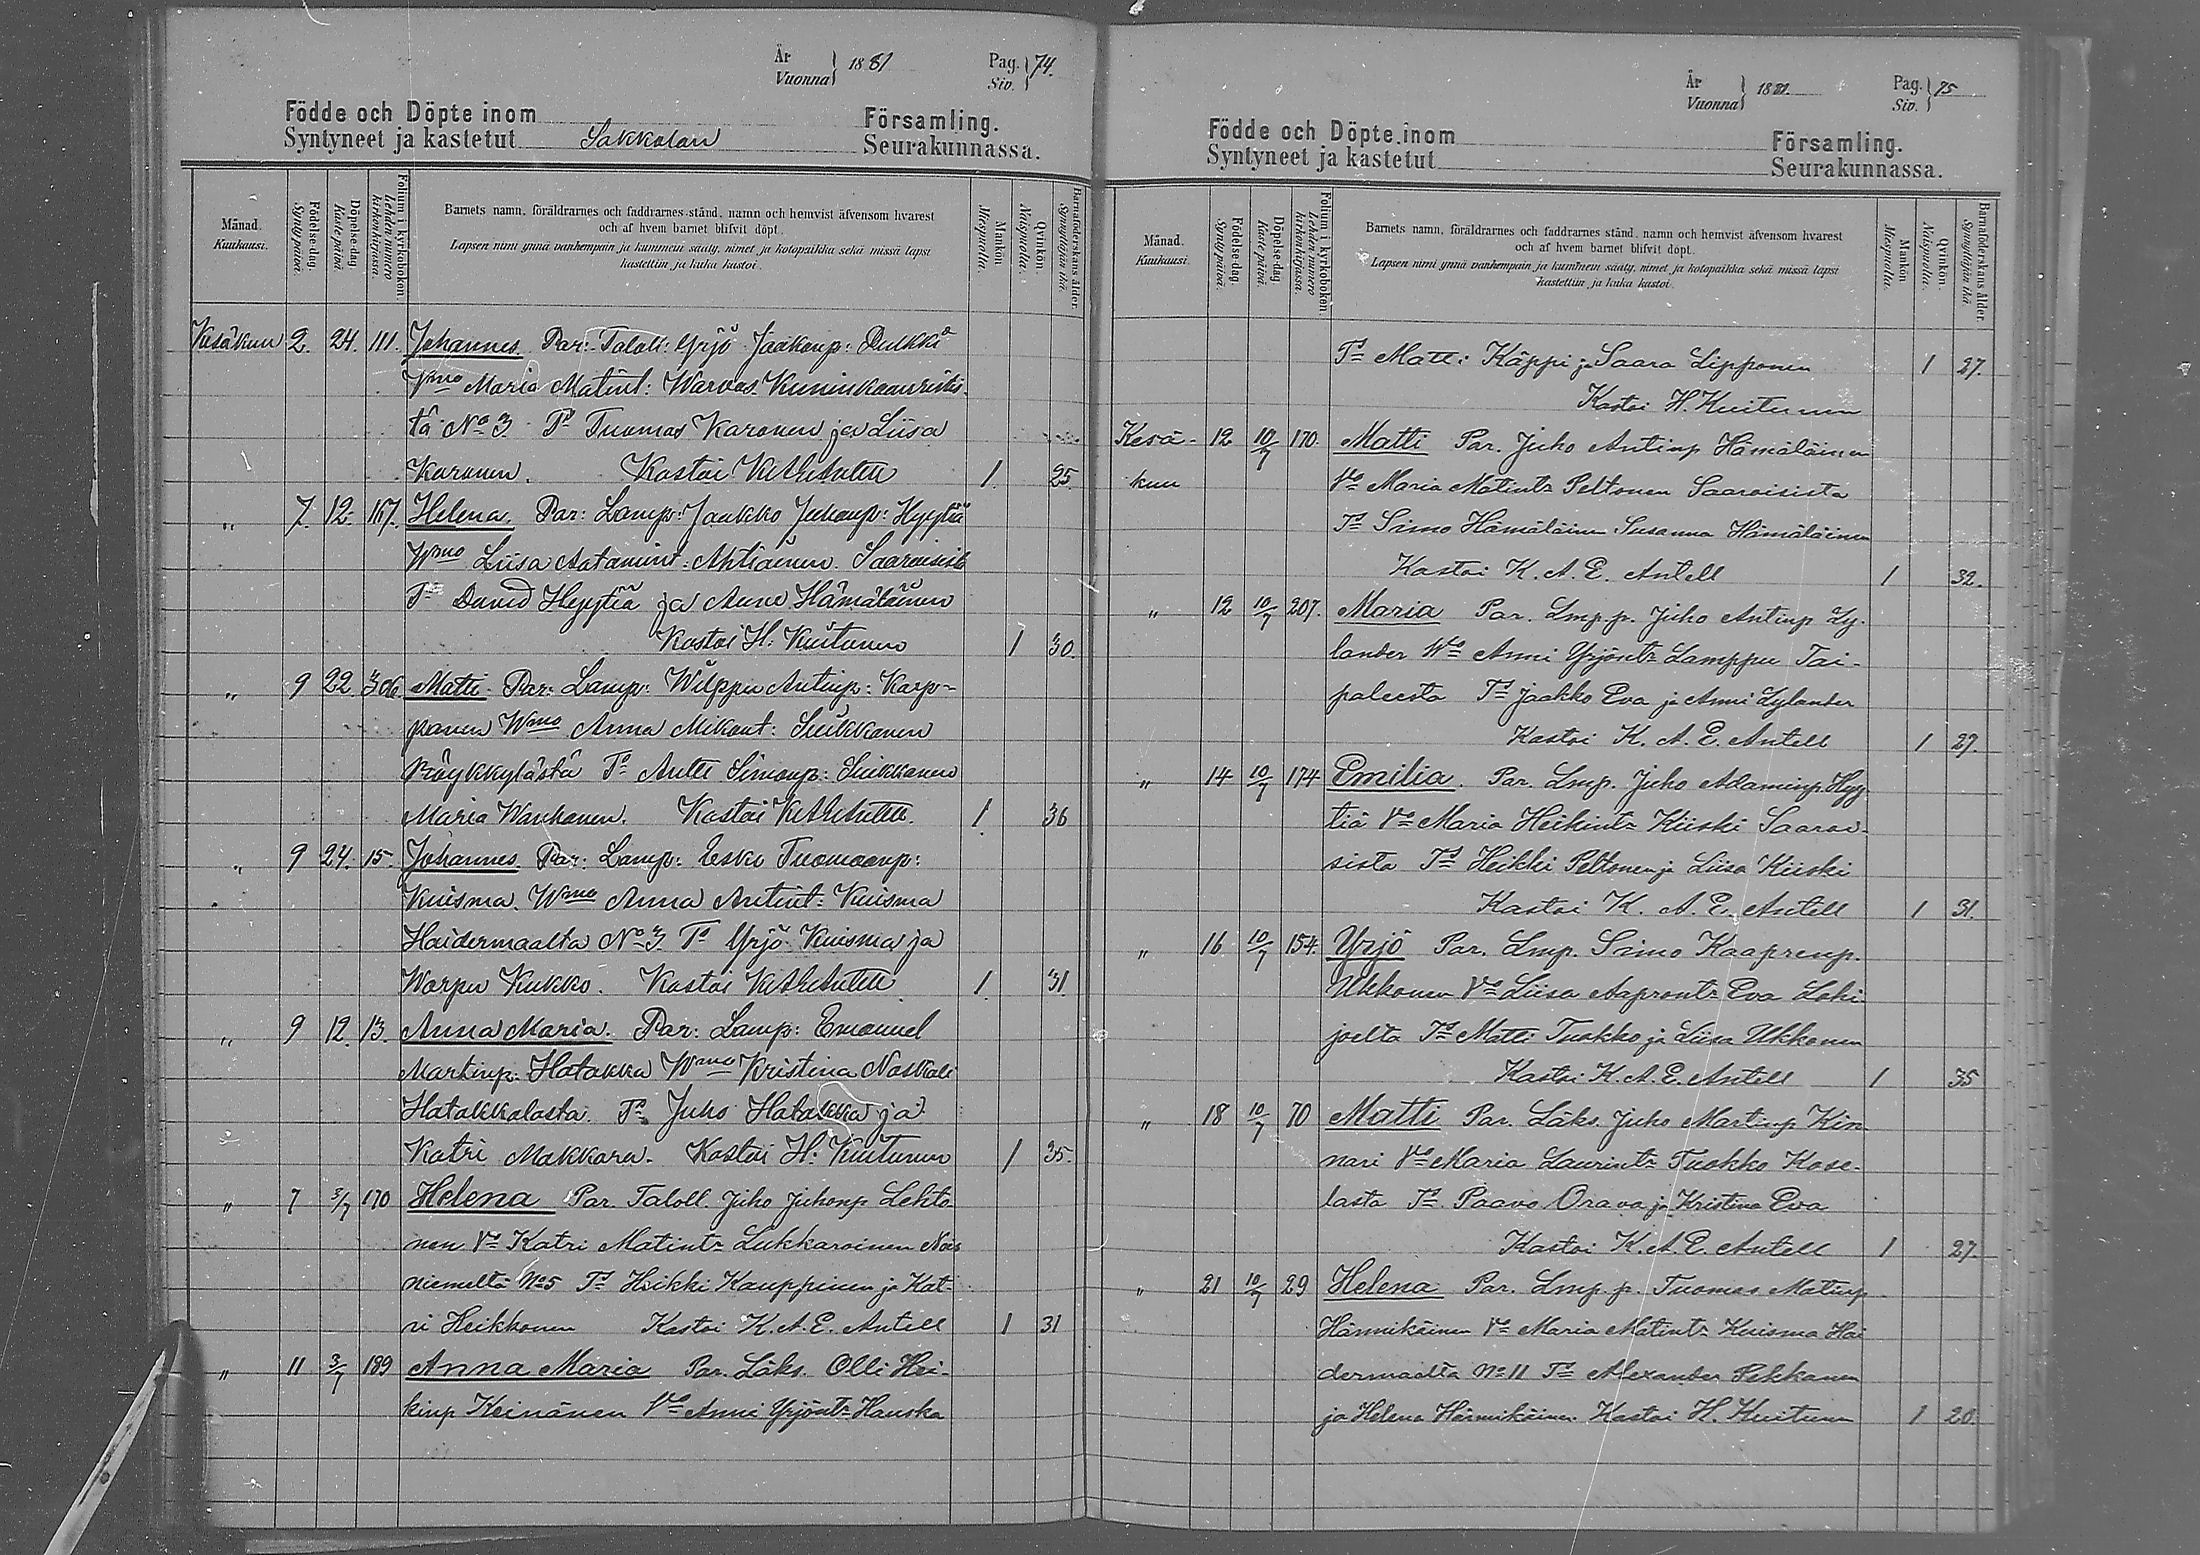 År
Vuonna } 1881
Pag.
Siv. } 74.
Födde och Döpte inom Församling.
Syntyneet ja kastetut Sakkolan Seurakunnassa.
Månad.
Kuukausi.
Födelse-dag.
Synty päivä.
Döpelse-dag
Kaste päivä.
Folium i kyrkoboken.
Lehden numero kirkonkirjassa.
Barnets namn, föräldrarnes och faddrarnes stånd, namn och hemvist äfvensom hvarest
och af hvem barnet blifvit döpt.
Lapsen nimi ynnä vanhempain ja kummein sääty, nimet ja kotopaikka sekä missä lapsi
kastettiin ja kuka kastoi.
Mankön
Miespuolia.
Qvinkön
Naispuolia.
Barnaföderskans ålder.
Synnyttäjän ikä.
Kesäkuu 2. 24. 111. Johannes. Par: Taloll: Yrjö Jaakonp: Pulkki
Wmo Maria Matint: Warvas Kuninkaanristis-
tä No 3 Ts Tuomas Karonen ja Liisa
Karonen. Kastoi K A E Antell 1. 25.
„ 7. 12. 167. Helena. Par: Lamp: Jaakko Juhonp: Hyytiä
Wmo Liisa Aatamint: Ahtiainen Saaroisist
Ts David Hyytiä ja Anna Hämäläinen
Kastoi H: Kuitunen 1 30.
„ 9 22 306 Matti. Par: Lamp: Wilppu Antinp: Karp-
panen Wmo Anna Mikont: Suikkanen
Röykkylästä Ts Antti Simonp: Suikkanen
Maria Wanhanen. Kastoi K A E Antell. 1. 36
„ 9 24. 15. Johannes. Par: Lamp: Esko Tuomaanp:
Kuisma. Wmo Anna Antint: Kuisma
Haidermaalta No 3 Ts Yrjö Kuisma ja
Warpu Kukko. Kastoi K A E Antell 1. 31.
„ 9 12. 13. Anna Maria. Par: Lamp: Emanuel
Martinp: Hatakka Wmo Kristina Naskali
Hatakkalasta. Ts Juho Hatakka ja
Katri Makkara. Kastoi H: Kuitunen 1 35.
„ 7 3/7 170 Helena Par. Taloll. Juho Juhonp Lehto-
nen Vo Katri Matintr Lukkaroinen Nois
niemeltä No 5 Ts Heikki Kauppinen ja Kat-
ri Heikkonen Kastoi K. A. E. Antell 1 31
„ 11 3/7 189 Anna Maria Par. Läks. Olli Hei-
kinp Keinänen Vo Anni Yrjöntr Hauska
År
Vuonna } 1881.
Pag.
Siv. } 75
Födde och Döpte inom Församling.
Syntyneet ja kastetut Seurakunnassa.
Månad.
Kuukausi.
Födelse-dag
Synty päivä.
Döpelse-dag
Kaste päivä.
Folium i kyrkoboken.
Lehden numero kirkonkirjassa.
Barnets namn, föräldrarnes och faddrarnes stånd, namn och hemvist äfvensom hvarest
och af hvem barnet blifvit döpt.
Lapsen nimi ynnä vanhempain ja kummein sääty, nimet ja kotopaikka sekä missä lapsi
kastettiin ja kuka kastoi.
Mankön
Miespuolia.
Qvinkön.
Naispuolia.
Barnaföderskans ålder.
Synnyttäjän ikä.
Ts Matti Käppi ja Saara Lipponen 1 27.
Kastoi H. Kuitunen
Kesä- 12 10/7 170. Matti Par. Juho Antinp Hämäläinen
kuu Vo Maria Matintr Peltonen Saaroisista
Ts Simo Hämäläinen Susanna Hämäläinen
Kastoi K. A. E. Antell 1 32.
„ 12 10/7 207. Maria Par. Lmp. p. Juho Antinp Ly-
lander Wo Anni Yrjöntr Lamppu Tai-
paleesta Ts Jaakko Eva ja Anni Lylander
Kastoi K. A. E. Antell 1 27.
„ 14 10/7 174 Emilia. Par. Lmp. Juho Adaminp. Hyy
tiä Vo Maria Heikintr Kiiski Saaroi-
sista Ts Heikki Peltonen ja Liisa Kiiski
Kastoi K. A. E. Antell 1 31.
„ 16 10/7 154. Yrjö Par. Lmp. Simo Kaaprenp.
Ukkonen Vo Liisa Aaprontr Eva Lohi-
joelta Ts Matti Tuokko ja Liisa Ukkonen
Kastoi K. A. E. Antell 1 35
„ 18 10/7 70 Matti Par. Läks. Juho Martinp Kin
nari Vo Maria Laurintr Tuokko Kose-
lasta Ts Paavo Orava ja Kristina Eva
Kastoi K. A. E. Antell 1 27.
„ 21 10/7 29 Helena Par. Lmp. p. Tuomas Matinp
Hännikäinen Vo Maria Matintr Kuisma Hai
dermaalta No 11 Ts Alexander Pekkanen
ja Helena Hännikäinen Kastoi H. Kuitunen 1 20.